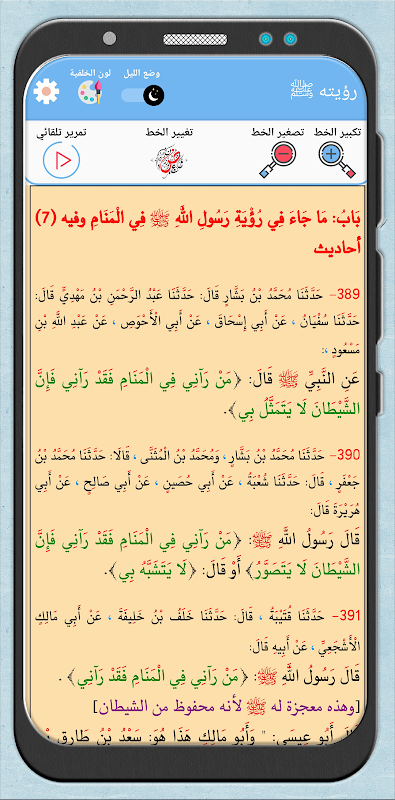 رؤيته ﷺ
وضع الليل
لون الخلفية
تكبير الخط
تصغير الخط
تغيير الخط
تمرير تلقائي
بَابُ: مَا جَاءَ فِي رُؤْيَةِ رَسُولِ اللَّهِ ﷺ فِي الْمَنَامِ وفيه (7)
أحاديث
389- حَدَّثَنَا مُحَمَّدُ بْنُ بَشَّارٍ قَالَ: حَدَّثَنَا عَبْدُ الرَّحْمَنِ بْنُ مَهْدِيٍّ قَالَ:
حَدَّثَنَا سُفْيَانُ ، عَنْ أَبِي إِسْحَاقَ ، عَنْ أَبِي الْأَحْوَصِ ، عَنْ عَبْدِ اللَّهِ بْنِ
مَسْعُودٍ ،:
عَنِ النَّبِيِّ ﷺ قَالَ: ﴿مَنْ رَآنِي فِي الْمَنَامِ فَقَدْ رَآنِي فَإِنَّ
الشَّيْطَانَ لَا يَتَمَثَّلُ بِي﴾.
390- حَدَّثَنَا مُحَمَّدُ بْنُ بَشَّارٍ ، وَمُحَمَّدُ بْنُ الْمُثَنَّى ، قَالَا: حَدَّثَنَا مُحَمَّدُ بْنُ
جَعْفَرٍ ، قَالَ: حَدَّثَنَا شُعْبَةُ ، عَنْ أَبِي حُصَيْنٍ ، عَنْ أَبِي صَالِحٍ ، عَنْ أَبِي
هُرَيْرَةَ قَالَ:
قَالَ رَسُولُ اللَّهِ ﷺ: ﴿مَنْ رَآنِي فِي الْمَنَامِ فَقَدْ رَآنِي فَإِنَّ
الشَّيْطَانَ لَا يَتَصَوَّرُ﴾ أَوْ قَالَ: ﴿لَا يَتَشَبَّهُ بِي﴾.
391- حَدَّثَنَا قُتَيْبَةُ ، قَالَ: حَدَّثَنَا خَلَفُ بْنُ خَلِيفَةَ ، عَنْ أَبِي مَالِكٍ
الْأَشْجَعِيِّ ، عَنْ أَبِيهِ قَالَ:
قَالَ رَسُولُ اللَّهِ ﷺ: ﴿مَنْ رَآنِي فِي الْمَنَامِ فَقَدْ رَآنِي﴾ .
[وهذه معجزة له ﷺ لأنه محفوظ من الشيطان]
قَالَ أَبُو عِيسَى: " وَأَبُو مَالِكٍ هَذَا هُوَ: سَعْدُ بْنُ طَارِقِ بْنِ